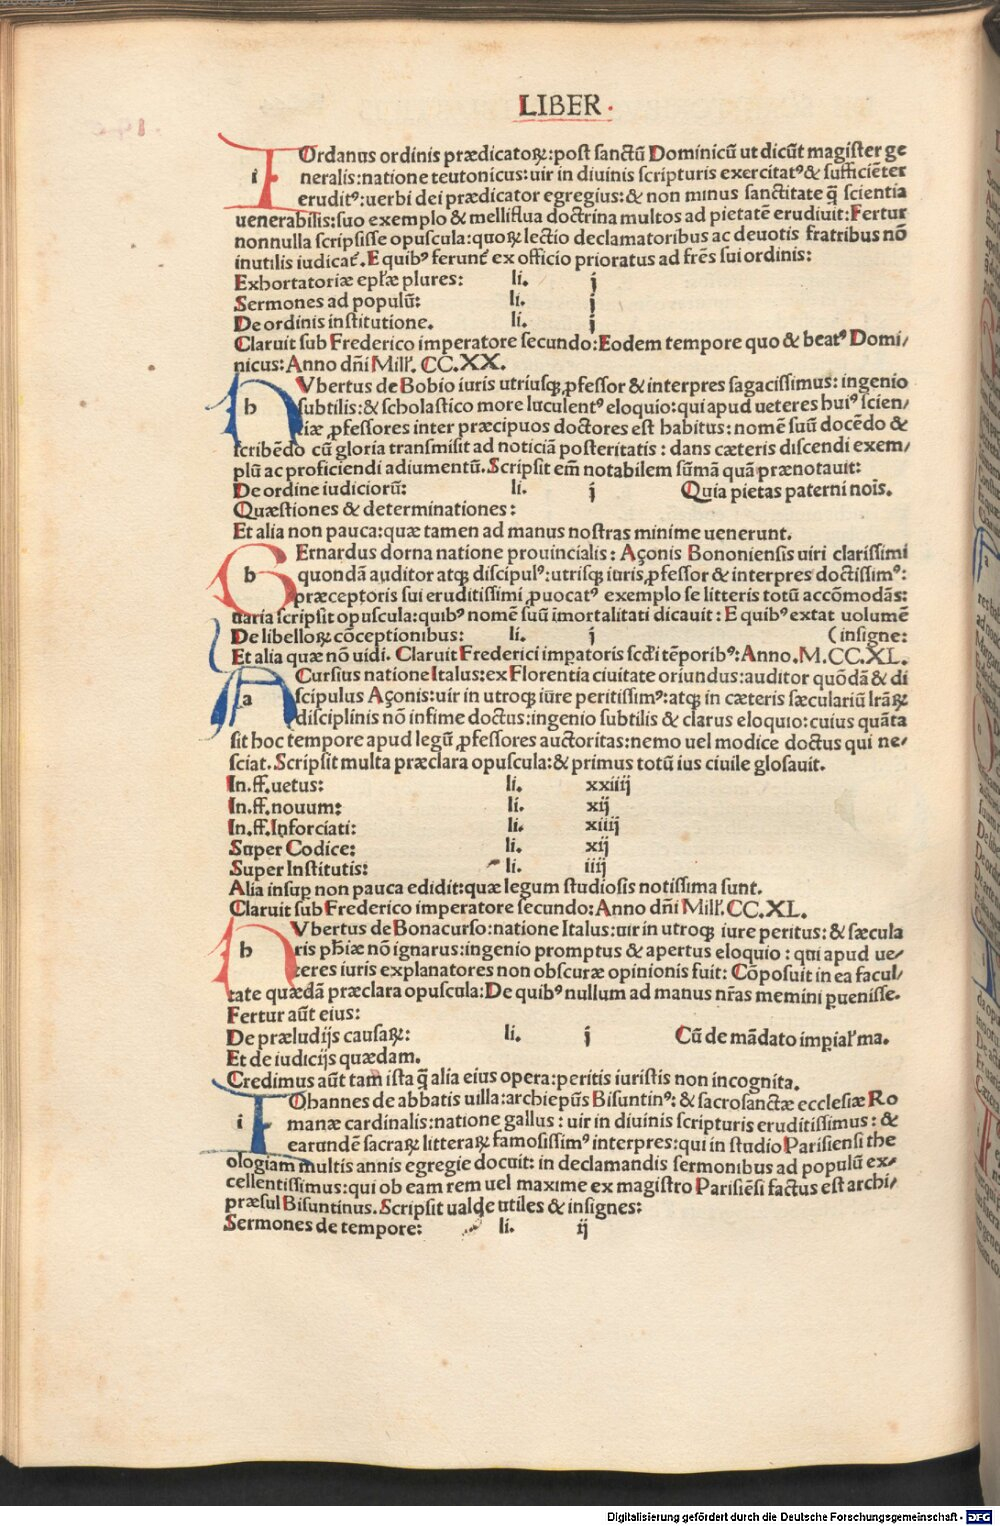 LIBER.
IOrdanus ordinis prædicatoꝝ:post sanctū Dominicū ut dicūt magister ge
neralis:natione teutonicus:uir in diuinis scripturis exercitatꝰ & sufficiēter
eruditꝰ:uerbi dei prædicator egregius:& non minus sanctitate q̄ scientia
uenerabilis:suo exemplo & melliflua doctrina multos ad pietatē erudiuit:Fertur
nonnulla scripsisse opuscula:quoꝝ lectio declamatoribus ac deuotis fratribus nō
inutilis iudicat̄.E quibꝰ ferunt̄ ex officio prioratus ad frēs sui ordinis:
Exhortatoriæ epl̄æ plures: li. j
Sermones ad populū: li. j
De ordinis institutione. li. j
Claruit sub Frederico imperatore secundo:Eodem tempore quo & beatꝰ Domi/
nicus:Anno dñi Mill'. CC.XX.
h Vbertus de Bobio iuris utriusqꝫ ꝓfessor & interpres sagacissimus: ingenio
subtilis:& scholastico more luculentꝰ eloquio:qui apud ueteres huiꝰ scien/
tiæ ꝓfessores inter præcipuos doctores est habitus: nomē suū docēdo &
scribēdo cū gloria transmisit ad noticiā posteritatis : dans cæteris discendi exem/
plū ac proficiendi adiumentū.Scripsit em̄ notabilem sūmā quā prænotauit:
De ordine iudiciorū: li. j Quia pietas paterni nois̄.
Quæstiones & determinationes :
Et alia non pauca:quæ tamen ad manus nostras minime uenerunt.
b Ernardus dorna natione prouincialis : Açonis Bononiensis uiri clarissimi
quondā auditor atqꝫ discipulꝰ:utrisqꝫ iuris ꝓfessor & interpres doctissimꝰ:
præceptoris sui eruditissimi ꝓuocatꝰ exemplo se litteris totū accōmodās:
uaria scripsit opuscula:quibꝰ nomē suū īmortalitati dicauit : E quibꝰ extat uolumē
De libelloꝝ cōceptionibus: li. j (insigne:
Et alia quæ nō uidi. Claruit Frederici impatoris scd̄i tēporibꝰ:Anno.M.CC.XL.
a Cursius natione Italus:ex Florentia ciuitate oriundus:auditor quōdā & di
scipulus Açonis:uir in utroqꝫ iure peritissimꝰ:atqꝫ in cæteris sæculariū lrāꝝ
disciplinis nō infime doctus:ingenio subtilis & clarus eloquio:cuius quāta
sit hoc tempore apud legū ꝓfessores auctoritas:nemo uel modice doctus qui ne/
sciat.Scripsit multa præclara opuscula:& primus totū ius ciuile glosauit.
In.ff.uetus: li. xxiiij
In.ff.nouum: li. xij
In.ff.Inforciati: li. xiiij
Super Codice: li. xij
Super Institutis: li. iiij
Alia insup non pauca edidit:quæ legum studiosis notissima sunt.
Claruit sub Frederico imperatore secundo:Anno dñi Mill'.CC.XL.
h Vbertus de Bonacurso:natione Italus:uir in utroqꝫ iure peritus:& sæcula
ris phīæ nō ignarus:ingenio promptus & apertus eloquio : qui apud ue/
teres iuris explanatores non obscuræ opinionis fuit: Cōposuit in ea facul/
tate quædā præclara opuscula:De quibꝰ nullum ad manus nr̄as memini puenisse.
Fertur aūt eius:
De præludijs causaꝝ: li. j Cū de mādato impial' ma.
Et de iudicijs quædam.
Credimus aūt tam ista q̄ alia eius opera:peritis iuristis non incognita.
i Ohannes de abbatis uilla:archiepūs Bisuntinꝰ: & sacrosanctæ ecclesiæ Ro
manæ cardinalis:natione gallus : uir in diuinis scripturis eruditissimus : &
earundē sacraꝝ litteraꝝ famosissimꝰ interpres:qui in studio Parisiensi the
ologiam multis annis egregie docuit: in declamandis sermonibus ad populū ex/
cellentissimus:qui ob eam rem uel maxime ex magistro Parisiēsi factus est archi/
præsul Bisuntinus.Scripsit ualde utiles & insignes:
Sermones de tempore: li. ij
Digitalisierung gefördert durch die Deutsche Forschungsgemeinschaft - DFG